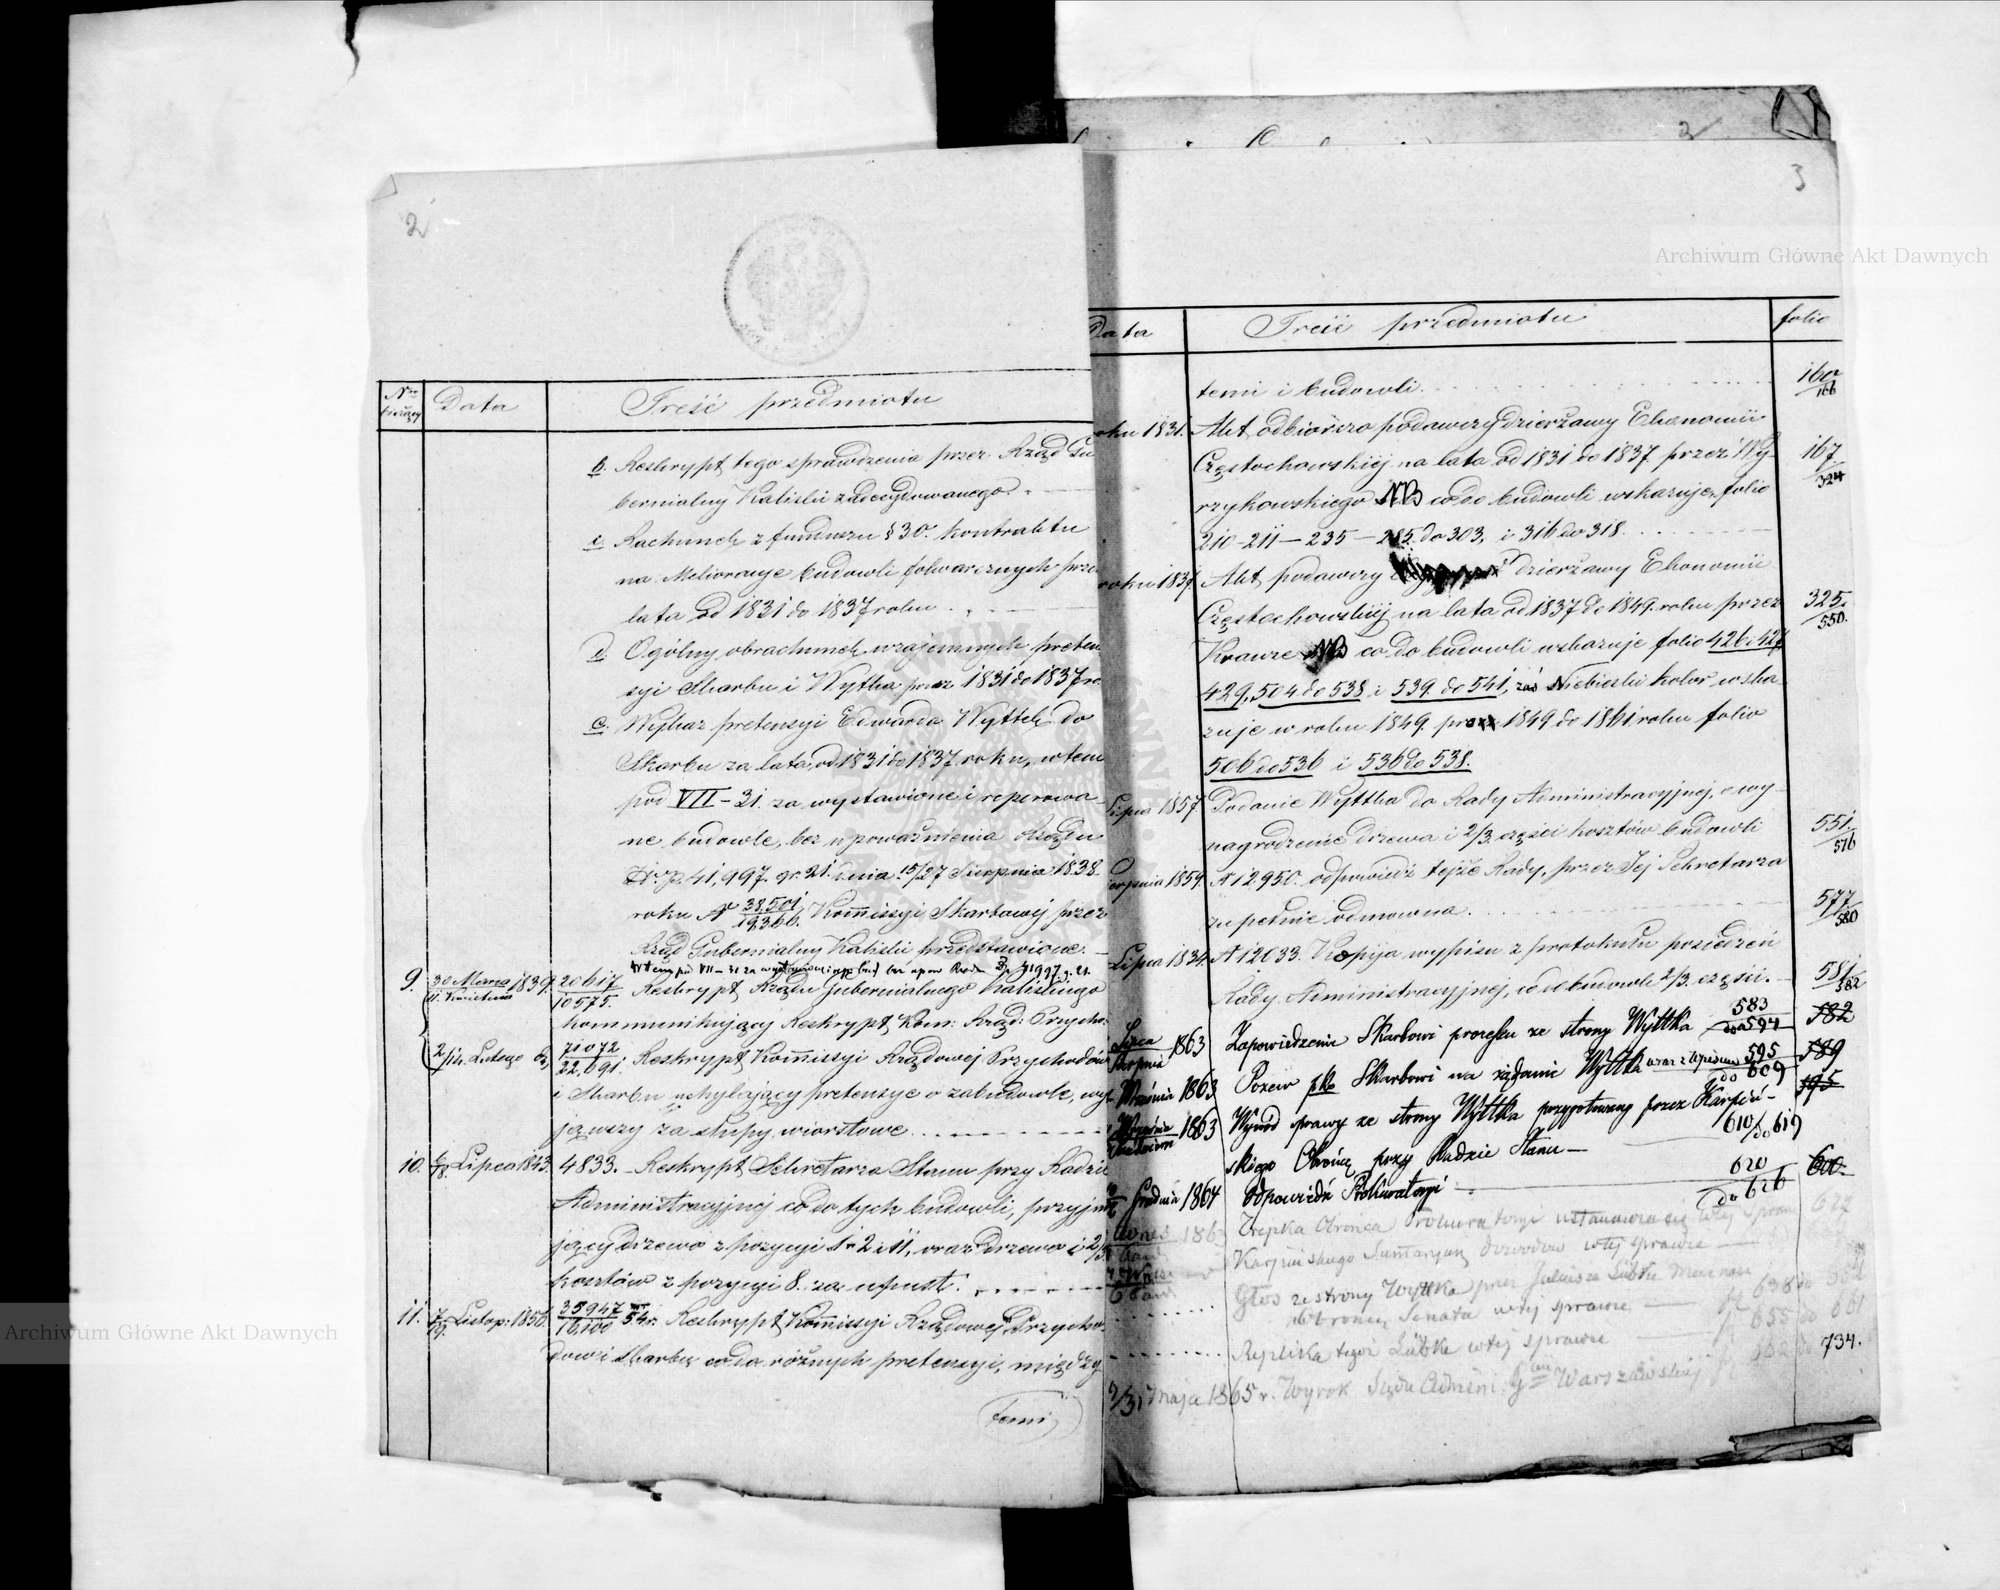 2
Nro bieżący Data Treść przedmiotu
b. Reskrypt tego sprawdzenia przez Rząd Gu
bernialny Kaliski zadecydowanego.
c. Rachunek z funduszu § 30. Kontraktu
na Melioracye budowli folwarcznych prze
lata od 1831 do 1837 roku
d. Ogólny obrachunek wzajemnych preten
syi Skarbu i Wyttka przez 1831 do 1837 ro
e. Wykaz pretensyi Edwarda Wyttek do
Skarbu za lata od 1831 do 1837 roku, w tem
pod VII – 31. za wystawione i reperowa
ne budowle, bez upoważnienia Rządu
Złp. 41,997. gr. 21. dnia 15/27 Sierpnia 1838
roku N 38,501/19,366. Kommissyi Skarbowej przez
Rząd Gubernialny Kaliski przedstawione.
W tem pod VII – 31 za wystawione i rep. bud. bez upow. Rządu Złp 41997 g. 21.
9. 30 Marca/11 Kwietnia 1839. 20617/10575. Reskrypt Rządu Gubernialnego Kaliskiego
kommunikujący Reskrypt Kom: Rząd: Przycho:
2/14 Lutego 71072/22,691. Reskrypt Kommissyi Rządowej Przychodów
i Skarbu uchylający pretensye o zabudowle, wy
jąwszy za słupy wiorstowe
10. 6/18 Lipca 1843. 4833. Reskrypt Sekretarza Stanu przy Radzie
Administracyjnej co do tych budowli, przyjmu
jący drzewo z pozycyi 1. 2 i 11, oraz drzewo i 2/3
kosztów z pozycyi 8. za upust.
11. 7/19. Listop: 1856. 35947/16,100 Reskrypt Kommissyi Rządowej Przycho
dów i Skarbu co do różnych pretensyi, między
temi
3
Data Treść przedmiotu folio
temi i budowli. 160/166
oku 1831. Akt odbiorczo podawczy dzierżawy Ekonomii
Częstochowskiej na lata od 1831 do 1837 przez Wy 167/324
rzykowskiego NB co do budowli wskazuje folio
210–211 – 235 – 285 do 303, i 316 do 318.
roku 1837. Akt podawczy dzierżawy Ekonomii
Częstochowskiej na lata od 1837 do 1849. roku przez 325/550.
Krauze NB co do budowli wskazuje folio 426 i 427
429, 504 do 538 i 539 do 541, zaś Niebieski kolor wska
zuje w roku 1849. przez 1849 do 1861 roku folio
506 do 536 i 536 do 538.
Lipca 1857 Podanie Wyttka do Rady Administracyjnej, o wy
nagrodzenie drzewa i 2/3 części kosztów budowli 551/576
ierpnia 1859. N 12950. odpowiedź tejże Rady, przez Jej Sekretarza
zupełnie odmowna. 577/580
Lipca 1834. N 12033. Kopija wypisu z protokułu posiedzeń
Rady Administracyjnej, co do budowli 2/3 części. 581/582
Lipca/Sierpnia 1863 Zapowiedzenie Skarbowi procesu ze strony Wyttka 583 do 594 582
Września 1863 Pozew pko Skarbowi na żądanie Wyttka wraz z 595 do 609 589
Września 1863 Wywód sprawy ze strony Wyttka przygotowany przez Karpiń- 595
skiego Obrońcę przy Radzie Stanu – 610/do 619
Grudnia 1864 Odpowiedź Prokuratoryi 620 do 626 600
1863 Trepka Obrońca Prokuratoryi ustanawia się w tej sprawie 627
Karpińskiego Sumaryusz dowodów w tej sprawie
Głos ze strony Wyttka przez Juliusza Lübke Mecenasa
obrońcę Senatu w tej sprawie
Replika tegoż Lübke w tej sprawie 655 do 661
662 do 734.
9/31 Maja 1865 r. Wyrok Sądu Warszawskiej
Archiwum Główne Akt Dawnych
Archiwum Główne Akt Dawnych